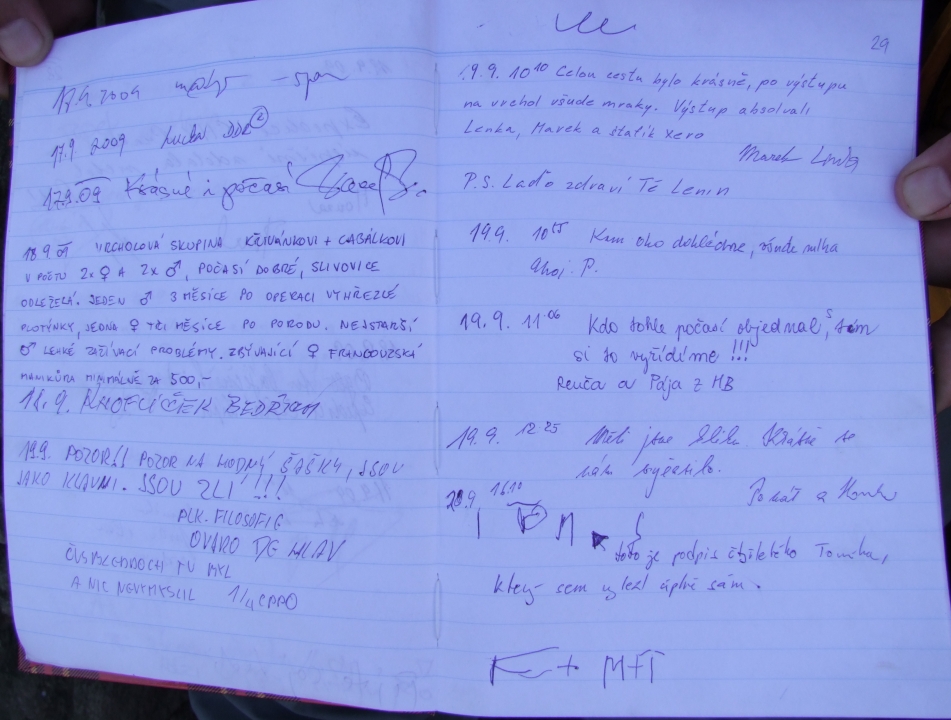 17.9.2009
17.9 2009 Lucka DDR 2
17.9.09 Krásné i počasí
18.9.09 VRCHOLOVÁ SKUPINA KŘIVÁNKOVI + CABÁLKOVI
V POČTU 2x ♀ A 2x ♂, POČASÍ DOBRÉ, SLIVOVICE
ODLEŽELÁ. JEDEN ♂ 3 MĚSÍCE PO OPERACI VYHŘEZLÉ
PLOTÝNKY, JEDNA ♀ TŘI MĚSÍCE PO PORODU. NEJSTARŠÍ
♂ LEHKÉ ZAŽÍVACÍ PROBLÉMY. ZBÝVAJÍCÍ ♀ FRANCOUZSKÁ
MANIKÚRA MINIMÁLNĚ ZA 500,-
18.9. KNOFLÍČEK BEDŘICH
19.9. POZOR!! POZOR NA HODNÝ ŠAŠKY, JSOU
JAKO KLAUNI. JSOU ZLÍ!!!
PLK. FILOSOFIE
OVARO DE HLAV
TU BYL
A NIC NEVYMYSLIL
29
19.9. 10 10 Celou cestu bylo krásně, po výstupu
na vrchol všude mraky. Výstup absolvali
Lenka, Marek a šťafík Xero
Marek
P.S. Laďo zdraví Tě Lenin
19.9. 10 55 Kam oko dohlédne, všude mlha
Ahoj. P.
19.9. 11.06 Kdo tohle počasí objednal, s tím
si to vyřídíme!!!
Renča a Pája z HB
19.9. 12 25 Měli jsme kliku. Krásně se
nám vyčasilo.
20.9. 16 10
toto je podpis čtyřletého Tomíka,
který sem vylezl úplně sám.
+ M+T